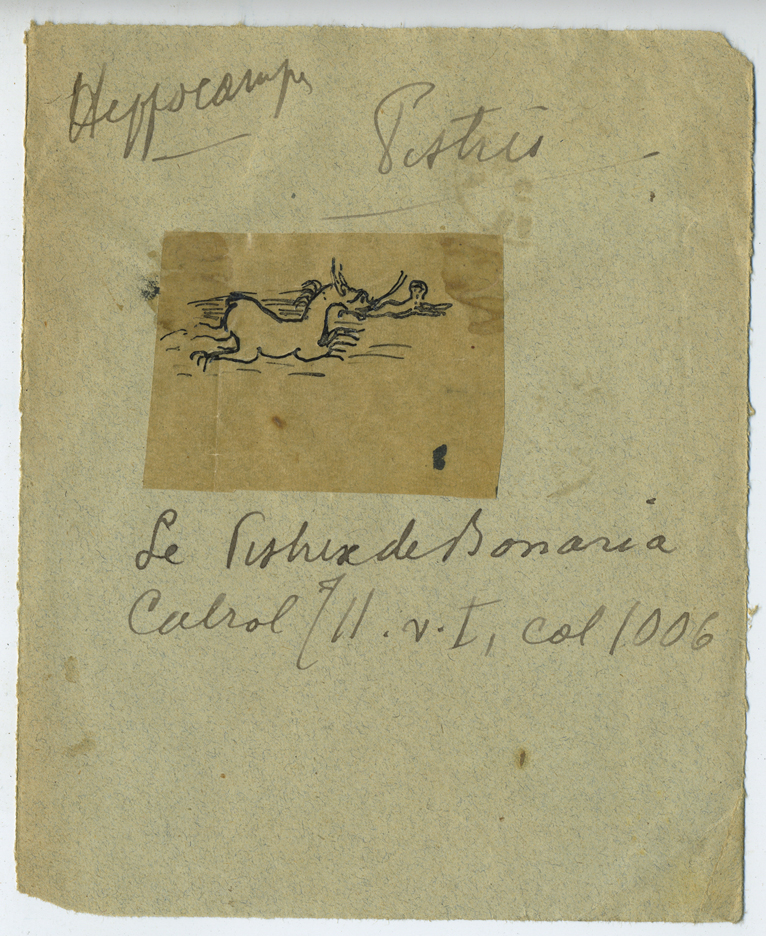 Hippocampe
Pistris
Le Pistrix de Bonaria
Cabrol II. v. I, col 1006